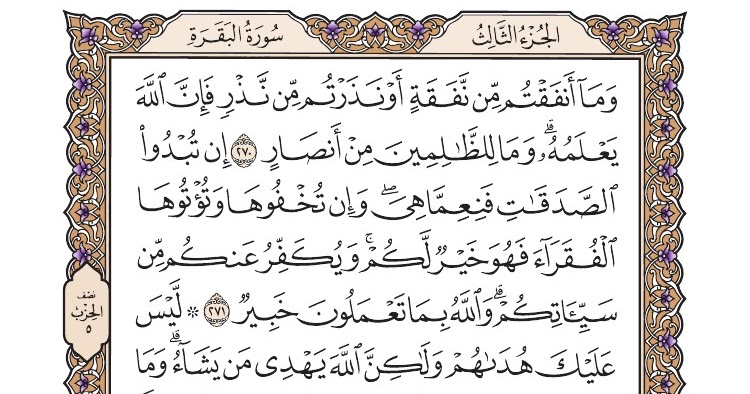 الجُزْءُ الثَّالِثُ
سُورَةُ البَقَرَةِ
وَمَآ أَنفَقْتُم مِّن نَّفَقَةٍ أَوْ نَذَرْتُم مِّن نَّذْرٍ فَإِنَّ ٱللَّهَ
يَعْلَمُهُۥۗ وَمَا لِلظَّٰلِمِينَ مِنْ أَنصَارٍ ٢٧٠ إِن تُبْدُوا۟
ٱلصَّدَقَٰتِ فَنِعِمَّا هِىَۖ وَإِن تُخْفُوهَا وَتُؤْتُوهَا
ٱلْفُقَرَآءَ فَهُوَ خَيْرٌ لَّكُمْۚ وَيُكَفِّرُ عَنكُم مِّن
سَيِّـَٔاتِكُمْۗ وَٱللَّهُ بِمَا تَعْمَلُونَ خَبِيرٌ ٢٧١ ۞ لَّيْسَ
عَلَيْكَ هُدَىٰهُمْ وَلَٰكِنَّ ٱللَّهَ يَهْدِى مَن يَشَآءُۗ وَمَا
نصف
الحزب
٥